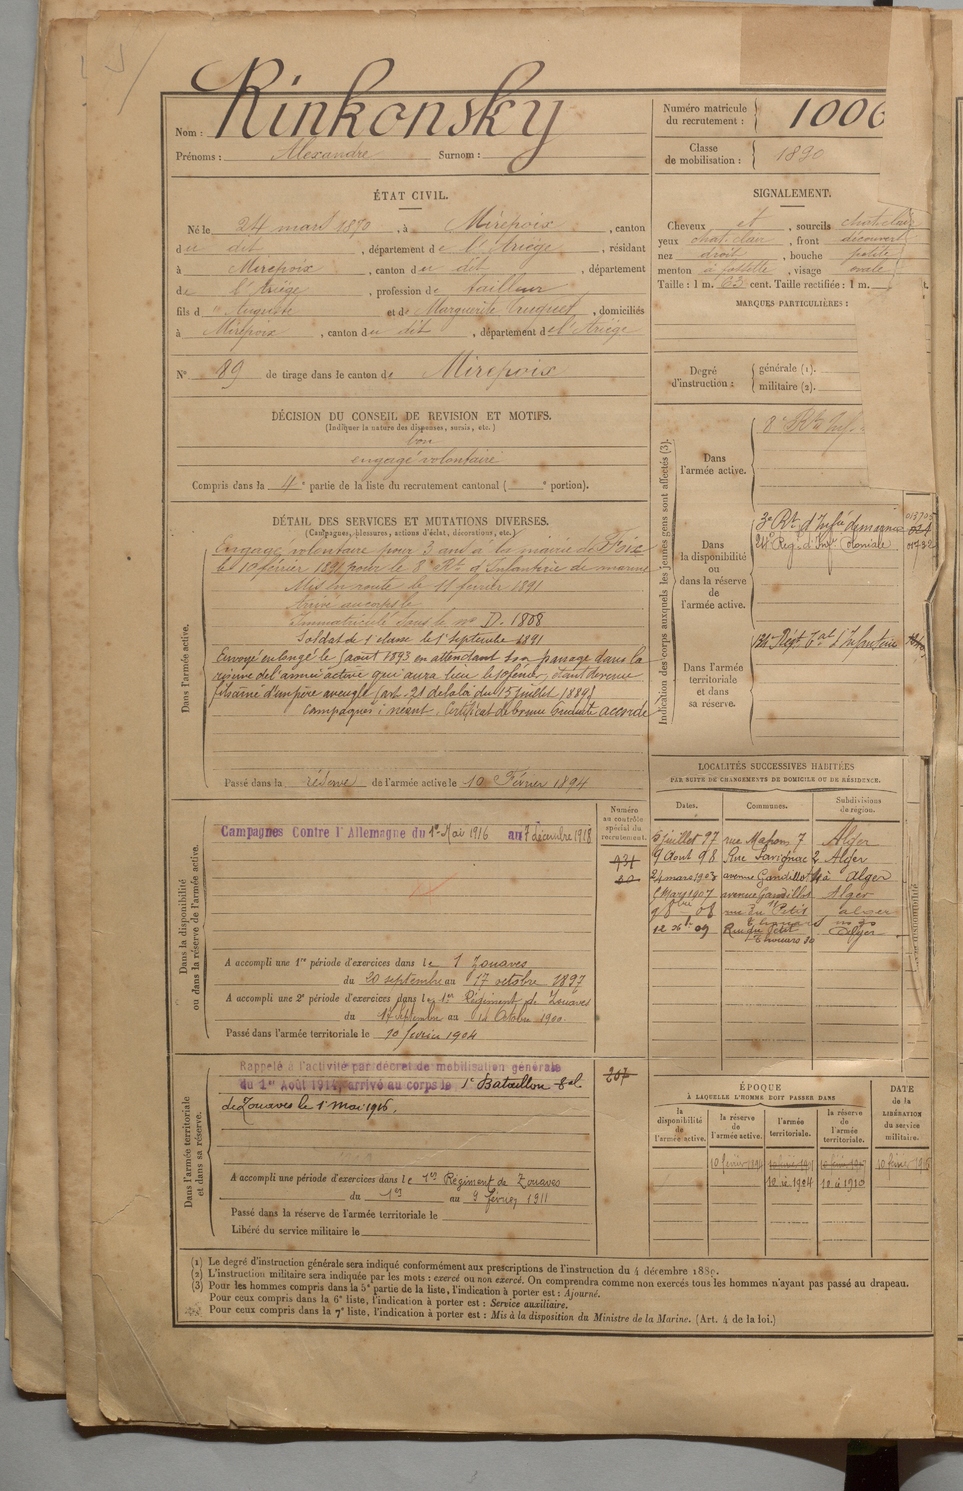 Nom : Rinkonsky
Prénoms : Alexandre Surnom :
Numéro matricule
du recrutement : 1006
Classe
de mobilisation : 1890
ÉTAT CIVIL.
Né le 24 mars 1870, à Mirepoix, canton
du dit, département de l'Ariège, résidant
à Mirepoix, canton du dit, département
de l'Ariège, profession de tailleur
fils d'Auguste et de Marguerite, domiciliés
à Mirepoix, canton du dit, département de l'Ariège
N° 89 de tirage dans le canton de Mirepoix
SIGNALEMENT.
Cheveux et, sourcils chat. clair
yeux chat. clair, front découvert
nez droit, bouche petite
menton à fossette, visage ovale
Taille : 1 m. 63 cent. Taille rectifiée : 1 m.
MARQUES PARTICULIÈRES :
Degré
d'instruction :
générale (1).
militaire (2).
DÉCISION DU CONSEIL DE REVISION ET MOTIFS.
(Indiquer la nature des dispenses, sursis, etc.)
bon
engagé volontaire
Compris dans la 4e partie de la liste du recrutement cantonal ( e portion).
DÉTAIL DES SERVICES ET MUTATIONS DIVERSES.
(Campagnes, blessures, actions d'éclat, décorations, etc.)
Dans l'armée active.
Engagé volontaire pour 3 ans à la mairie de Foix
le 10 février 1891 pour le 8e Rt d'Infanterie de marine
Mis en route le 11 février 1891
Arrivé au corps le
Immatriculé sous le no D. 1808
Soldat de 1 classe le 1er septembre 1891
Envoyé en congé le 5 août 1893 en attendant son passage dans la
réserve de l'armée active qui aura lieu le, étant devenu
fils aîné d'un père aveugle (art. 21 de la loi du 15 juillet 1889)
Campagnes : néant. Certificat de bonne conduite accordé
Passé dans la réserve de l'armée active le 10 Février 1894
Indication des corps auxquels les jeunes gens sont affectés (3).
Dans
l'armée active.
8e Rt Inf.
Dans
la disponibilité
ou
dans la réserve
de
l'armée active.
3e Rt d'Infie de marine
Rég. d'Inf. Coloniale
Dans l'armée
territoriale
et dans
sa réserve.
Régt Tal d'Infanterie
LOCALITÉS SUCCESSIVES HABITÉES
PAR SUITE DE CHANGEMENTS DE DOMICILE OU DE RÉSIDENCE.
Dates. Communes. Subdivisions de région.
5 juillet 97 rue Mahon 7 Alger
9 Août 98 Rue Savignac 2 Alger
24 mars 1903 avenue Gandillot à Alger
Mars 1907 avenue Gandillot Alger
9 8bre 08 rue du Petit Alger
12 Xbre 09 Rue du Petit Thouars 30 Alger
Dans la disponibilité
ou dans la réserve de l'armée active.
Numéro
au contrôle
spécial du
recrutement.
Campagnes Contre l'Allemagne du 1er Mai 1916 au 7 décembre 1918
A accompli une 1re période d'exercices dans le 1 Zouaves
du 20 septembre au 17 octobre 1897
A accompli une 2e période d'exercices dans le 1er Régiment de Zouaves
du 17 septembre au 14 Octobre 1900
Passé dans l'armée territoriale le 10 février 1904
Dans l'armée territoriale
et dans sa réserve.
Rappelé à l'activité par décret de mobilisation générale
du 1er Août 1914, arrivé au corps le 1er Bataillon Tal
de Zouaves le 1er mai 1916.
267
A accompli une période d'exercices dans le 1er Régiment de Zouaves
du 1er au 9 février 1911
Passé dans la réserve de l'armée territoriale le
Libéré du service militaire le
ÉPOQUE
À LAQUELLE L'HOMME DOIT PASSER DANS
la disponibilité de l'armée active.
la réserve de l'armée active.
l'armée territoriale.
la réserve de l'armée territoriale.
DATE de la LIBÉRATION du service militaire.
10 février 1894
10 février 1916
10 id 1904 10 id 1910
(1) Le degré d'instruction générale sera indiqué conformément aux prescriptions de l'instruction du 4 décembre 1889.
(2) L'instruction militaire sera indiquée par les mots : exercé ou non exercé. On comprendra comme non exercés tous les hommes n'ayant pas passé au drapeau.
(3) Pour les hommes compris dans la 5e partie de la liste, l'indication à porter est : Ajourné.
Pour ceux compris dans la 6e liste, l'indication à porter est : Service auxiliaire.
Pour ceux compris dans la 7e liste, l'indication à porter est : Mis à la disposition du Ministre de la Marine. (Art. 4 de la loi.)